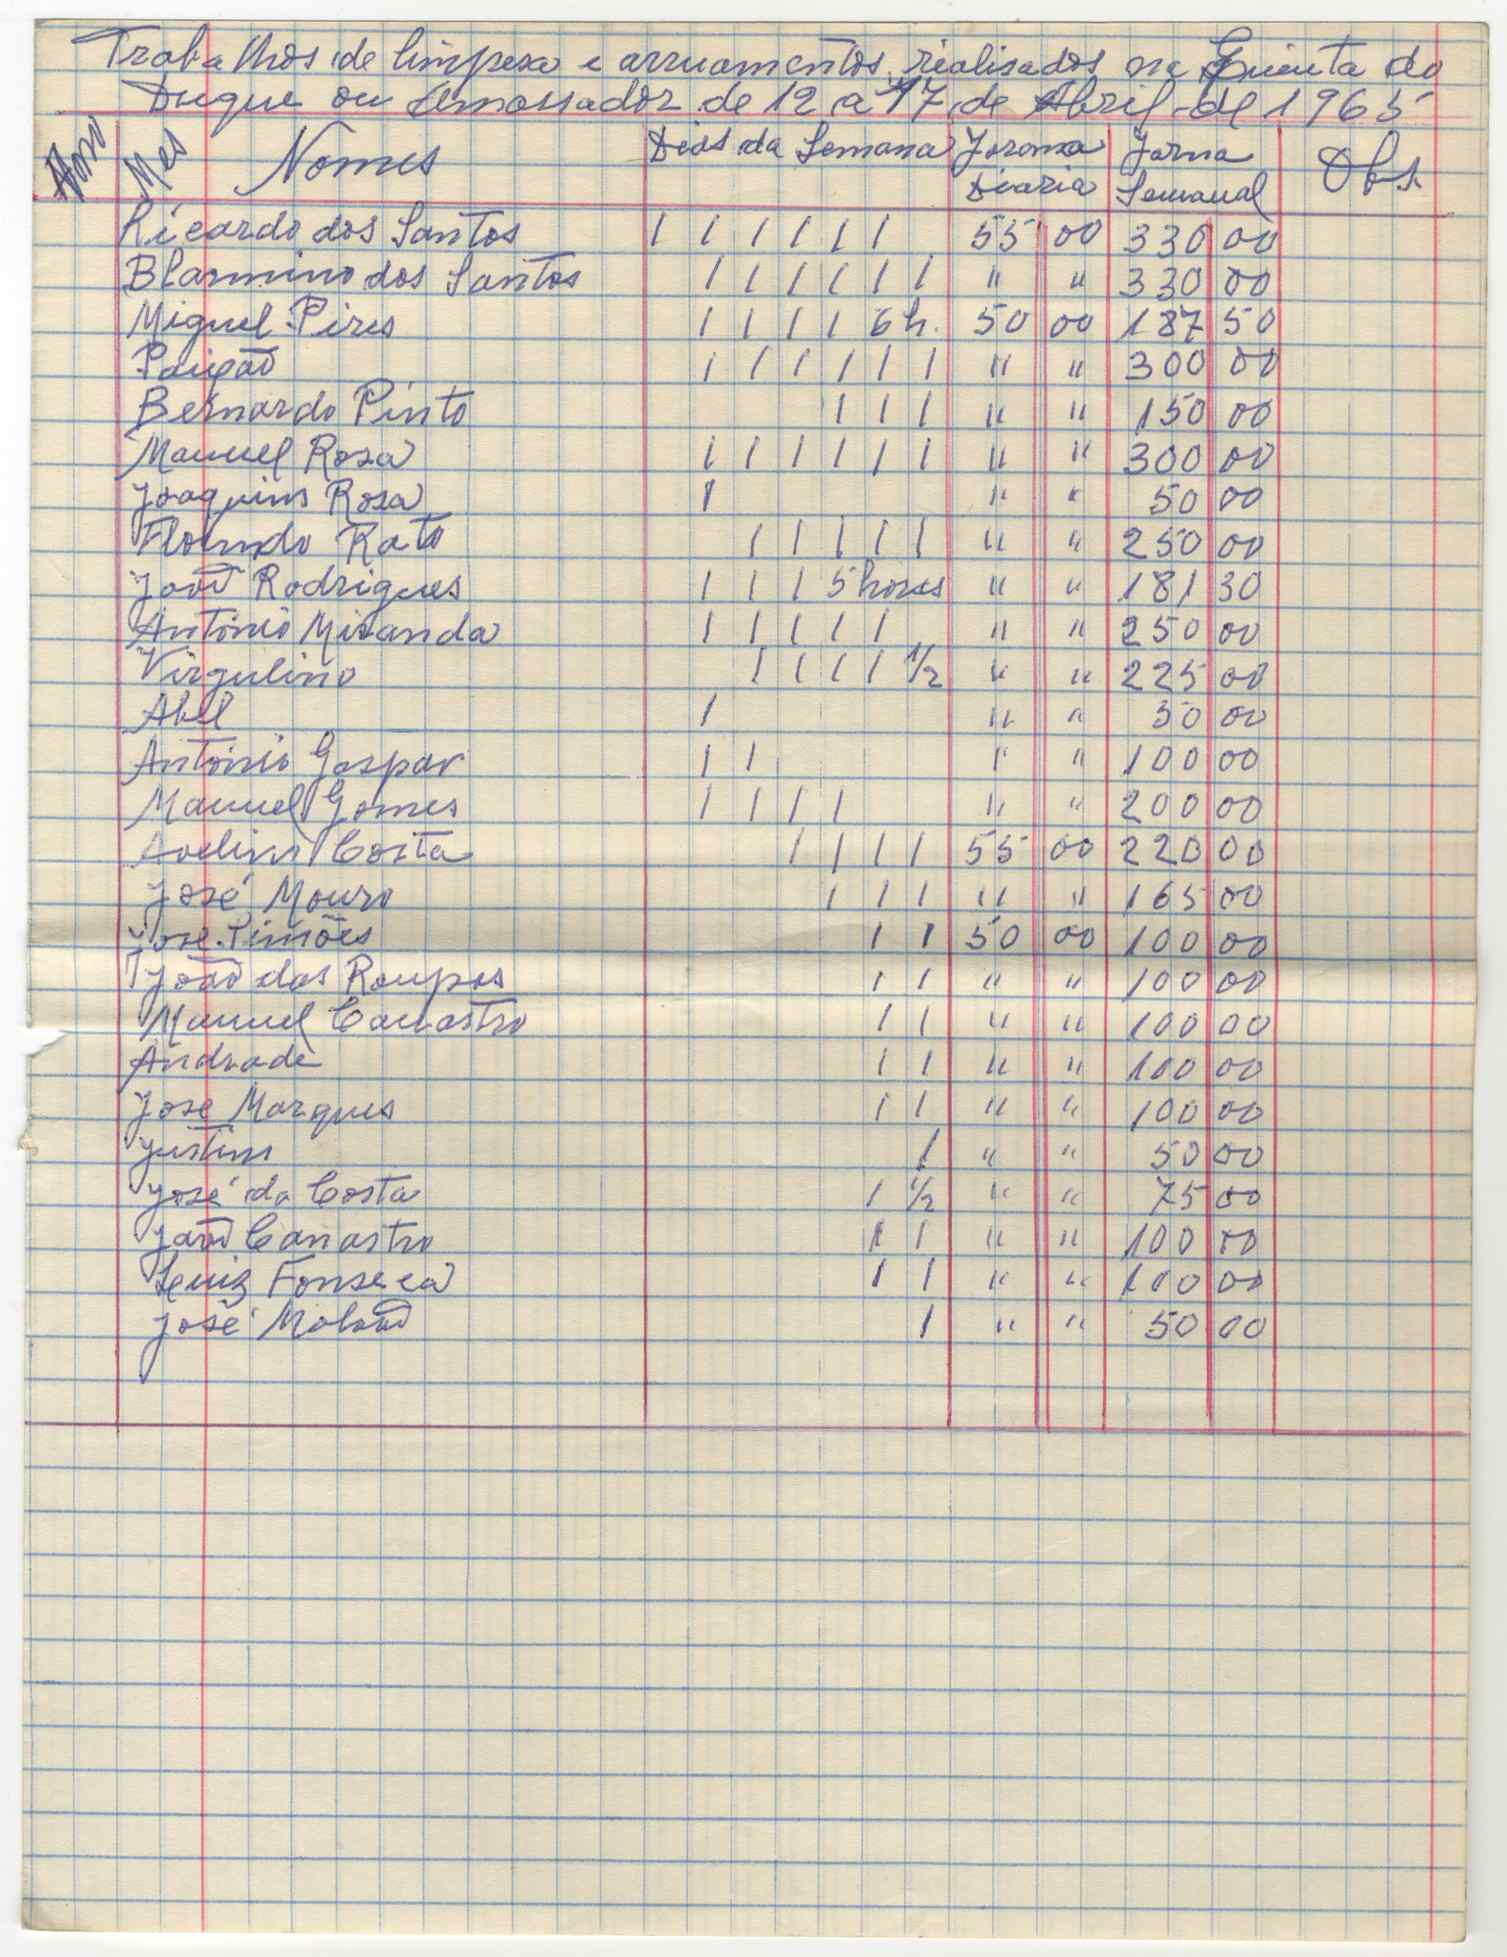 Trabalhos de limpesa e arruamentos realisados na Quinta do
Duque ou Amassador de 12 a 17 de Abril de 1965
Anno Mes Nomes Dias da Semana Jorna Diaria Jorna Semanal Obs.
Ricardo dos Santos 1 1 1 1 1 1 55 00 330 00
Blarmino dos Santos 1 1 1 1 1 1 " " 330 00
Miguel Pires 1 1 1 1 6 h. 50 00 187 50
1 1 1 1 1 1 " " 300 00
Bernardo Pinto 1 1 1 " " 150 00
Manuel Rosa 1 1 1 1 1 1 " " 300 00
Joaquim Rosa 1 " " 50 00
Florindo Rato 1 1 1 1 1 " " 250 00
João Rodrigues 1 1 1 5 horas " " 181 30
António Miranda 1 1 1 1 1 " " 250 00
Virgulino 1 1 1 1 1/2 " " 225 00
Abel 1 " " 50 00
António Gaspar 1 1 " " 100 00
Manuel Gomes 1 1 1 1 " " 200 00
Avelino Costa 1 1 1 1 55 00 220 00
José Mouro 1 1 1 " " 165 00
José Simões 1 1 50 00 100 00
João das Roupas 1 1 " " 100 00
Manuel Canastro 1 1 " " 100 00
Andrade 1 1 " " 100 00
José Marques 1 1 " " 100 00
Justino 1 " " 50 00
José da Costa 1 1/2 " " 75 00
João Canastro 1 1 " " 100 00
Luiz Fonseca 1 1 " " 100 00
José 1 " " 50 00